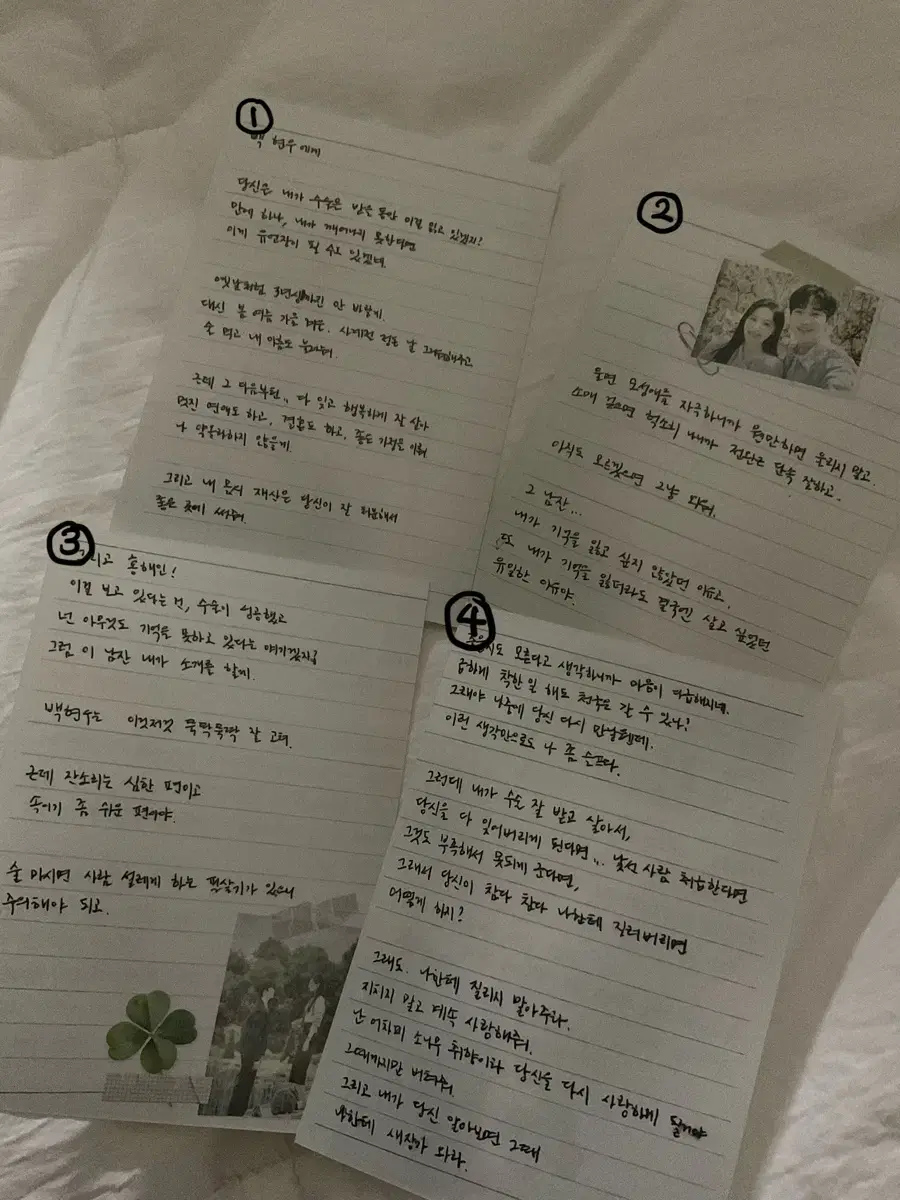 ①
백현우에게
당신은 내가 수술을 받을 동안 이걸 읽고 있겠지?
만에 하나, 내가 깨어나지 못한다면
이게 유언장이 될 수도 있겠네.
옛날처럼 3년상까진 안 바랄게.
대신 봄 여름 가을 겨울. 사계절 정도 날 그리워해주고
술 먹고 내 이름도 불러줘.
근데 그 다음부턴,, 다 잊고 행복하게 잘 살아
멋진 연애도 하고, 결혼도 하고, 좋은 가정을 이뤄
나 약올라하지 않을게.
그리고 내 몫의 재산은 당신이 잘 처분해서
좋은 곳에 써줘.
②
울면 모성애를 자극하니까 웬만하면 울리지 말고.
소매 걷으면 섹소히 내가 전단근 단속 잘하고.
아직도 모르겠으면 그냥 외워.
그 남잔...
내가 기억을 잃고 싶지 않았던 이유고.
또 내가 기억을 잃더라도 결국엔 살고 싶었던
유일한 이유야.
③
그리고 홍해인!
이걸 보고 있다는 건, 수술이 성공했고
넌 아무것도 기억을 못하고 있다는 얘기겠지?
그럼 이 남잔 내가 소개를 할게.
백현우는 이것저것 뚝딱뚝딱 잘 고쳐.
근데 잔소리는 심한 편이고
속이기 좀 쉬운 편이야.
술 마시면 사람 설레게 하는 필살기가 있으니
주의해야 되고.
④
모른다고 생각하니까 마음이 다급해지네.
급하게 착한 일 해도 천국은 갈 수 있나?
그래야 나중에 당신 다시 만날텐데.
이런 생각만으로도 나 좀 슬프다.
그런데 내가 수술 잘 받고 살아서,
당신을 다 잊어버리게 된다면,,, 낯선 사람 취급한다면
그것도 부족해서 못되게 군다면,
그래서 당신이 참다 참다 나한테 질려버리면
어떻게 하지?
그래도. 나한테 질리지 말아주라.
지치지 말고 계속 사랑해줘.
난 어차피 소나무 취향이라 당신을 다시 사랑하게 될거야
그때까지만 버텨줘.
그리고 내가 당신 알아보면 그때
나한테 새장가 와라.